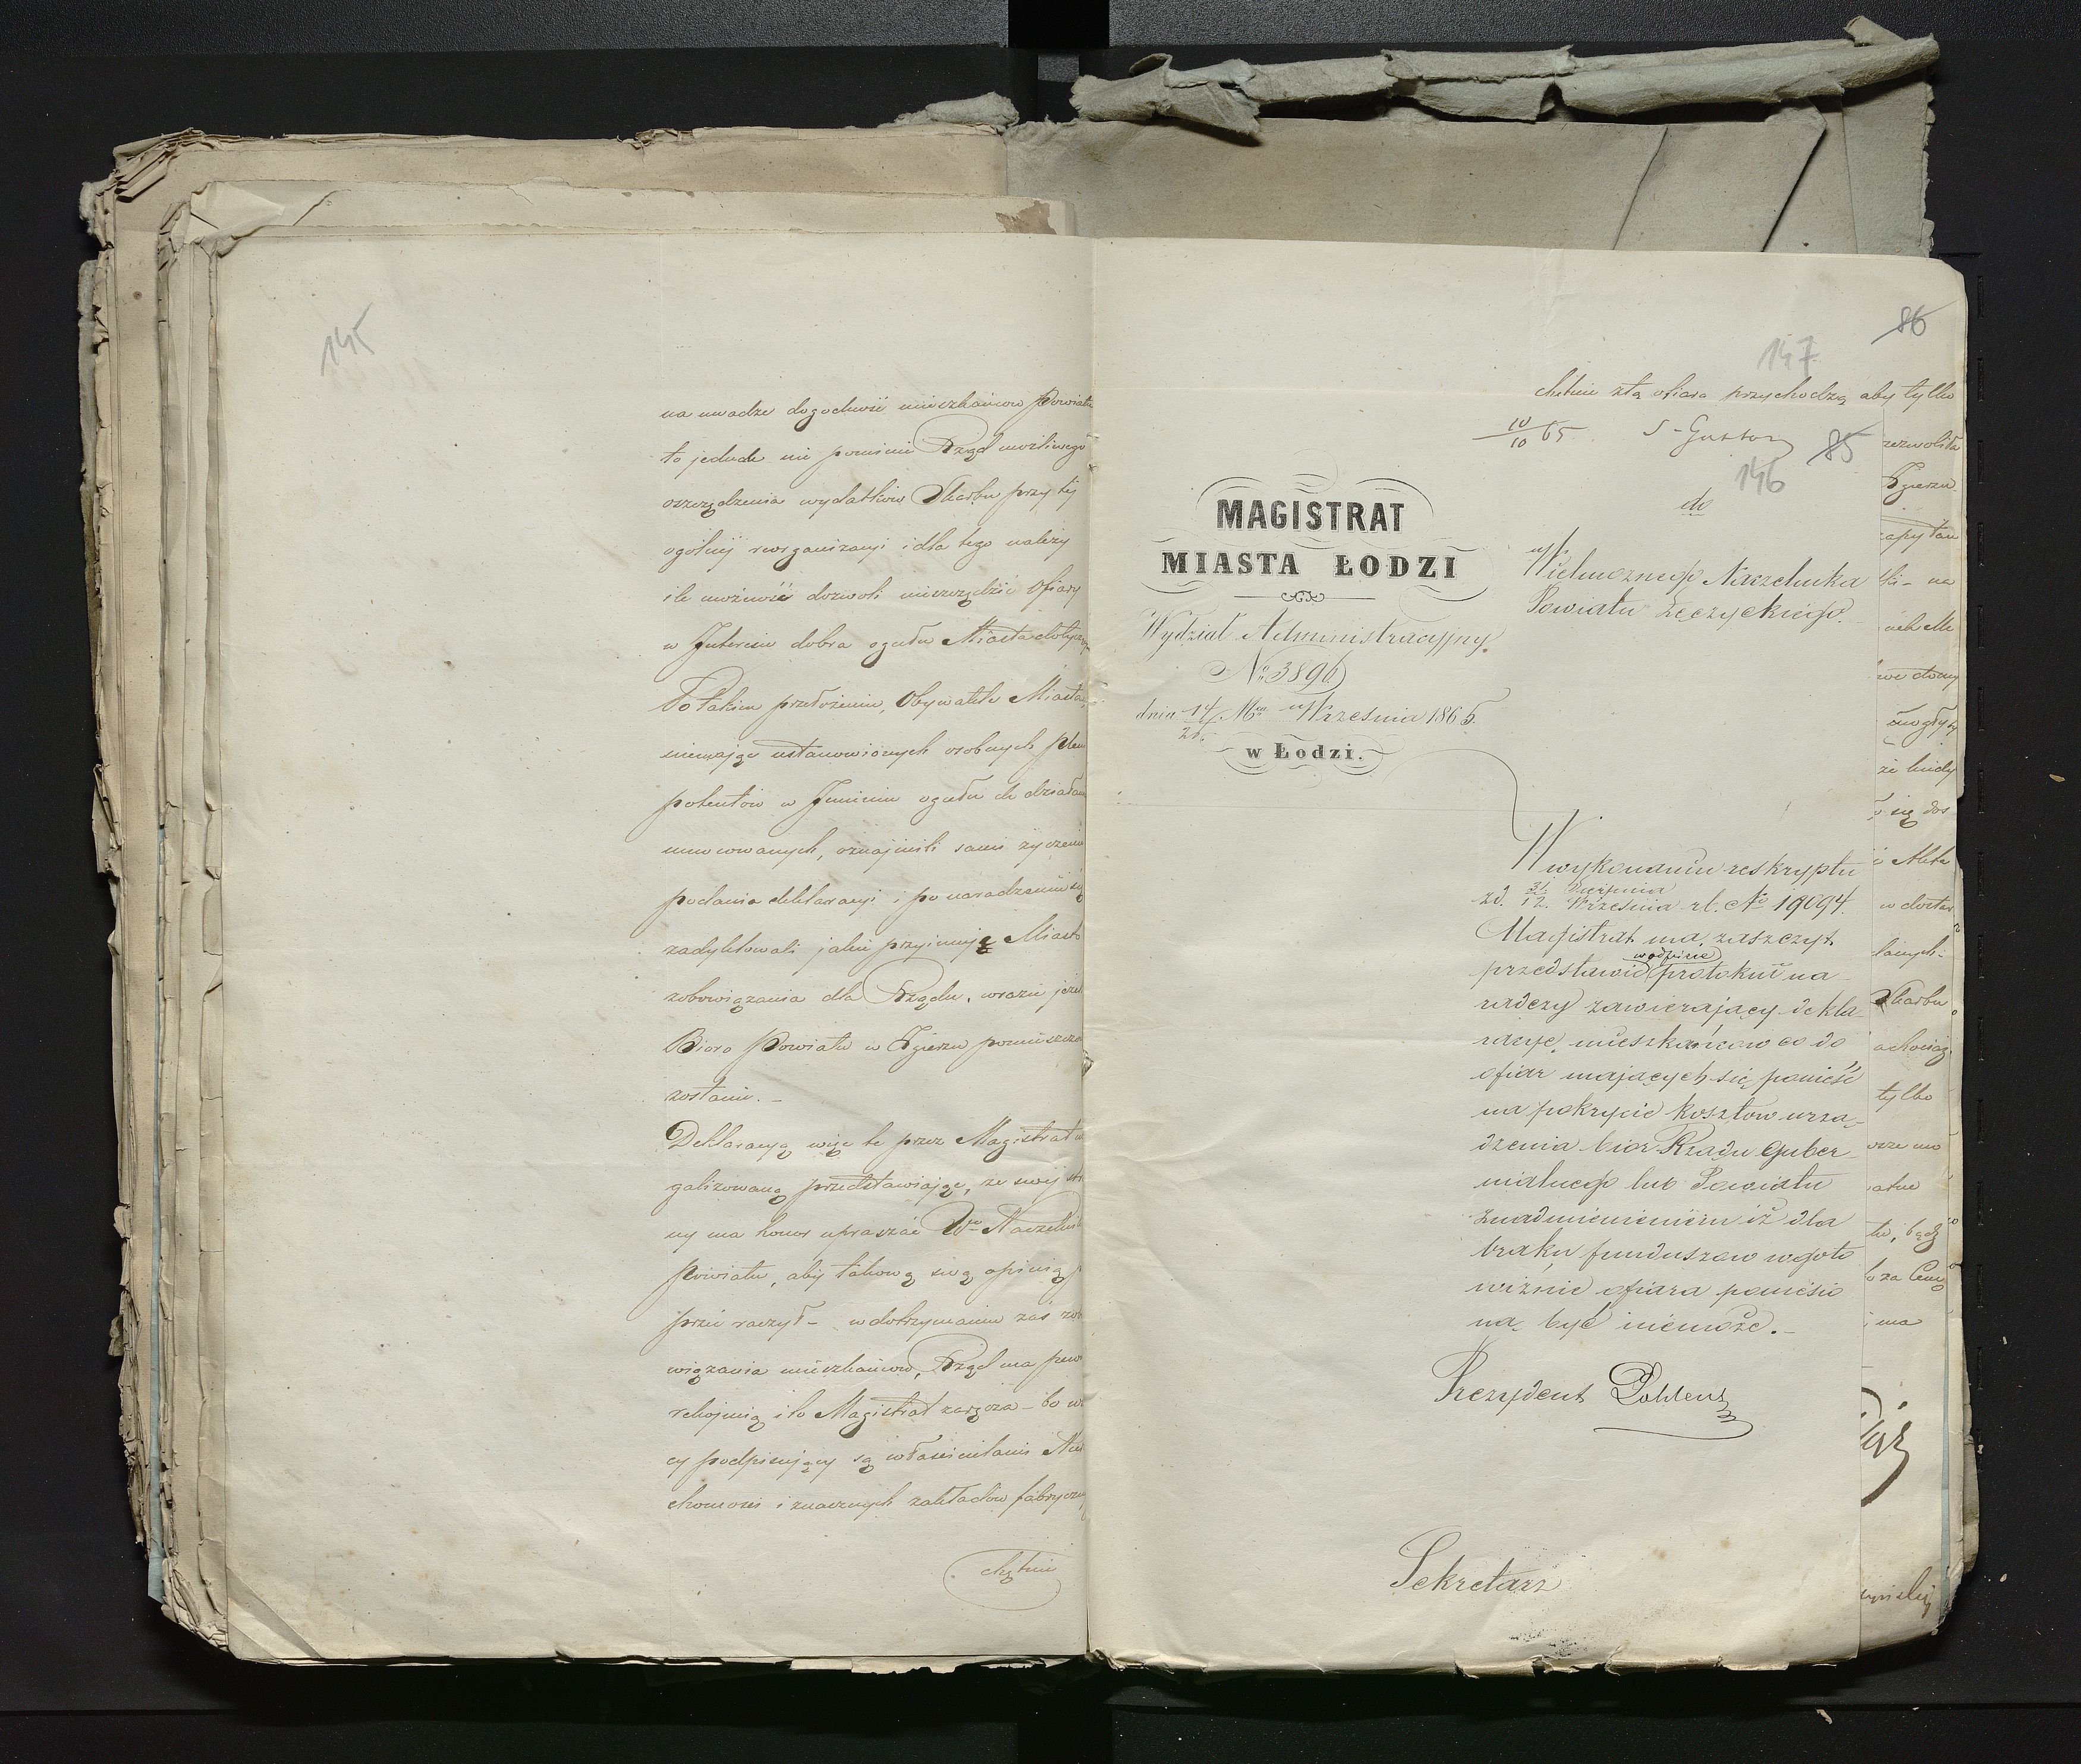 145
na uwadze dogodność mieszkańców Powiatu
to jednak nie pominie Rząd możliwego
oszczędzenia wydatków Skarbu przy tej
ogólnej reorganizacyi i dla tego należy
ile możność dozwoli nieszczędzić Ofiary
w Interesie dobra ogółu Miasta
Po takiem przełożeniu, Obywatele Miasta,
niemając ustanowionych osobnych Plen
potentów w Imieniu ogółu do działań
umocowanych, oznajmili sami życzenie
podania deklaracyi i po naradzeniu się
zadyktowali jakie przyjmują Miasto
zobowiązania dla Rządu, wrazie jeżeli
Bioro Powiatu w Zgierzu pomieszczo
zostanie. –
Deklaracyą więc te przez Magistrat
galizowaną przedstawiając, ze swej str
ny ma honor upraszać Wo Naczelnik
Powiatu, aby takową swą opinią p
przeć raczył – w dotrzymaniu zaś zobo
wiązania mieszkańców, Rząd ma pew
rękojmią i to Magistrat zaręcza – bo
cy podpisujący są właścicielami Nie
chomości i znacznych zakładów fabryczny
chętnie
86
147
chętnie z tą ofiarą przychodzą aby tylko
10/10 65
85
146
do
Wielmożnego Naczelnika
Powiatu Łęczyckiego.
MAGISTRAT
MIASTA ŁODZI
Wydział Administracyjny.
No 3896
dnia 14/26 Mca Września 1865.
w Łodzi.
W wykonaniu reskryptu
z d. 31 Sierpnia / 12 Września rb. No 19094.
Magistrat ma zaszczyt
przedstawić w odpisie protokuł na-
radczy zawierający dekla-
racyę mieszkańców co do
ofiar mających się ponieść
na pokrycie kosztów urzą-
dzenia biór Rządu Guber-
nialnego lub Powiatu
z nadmienieniem iż dla
braku funduszów w goto
wiźnie ofiara poniesio
ną być niemoże. –
Prezydent Pohlens
Sekretarz
zezwoliła
Zgierzu
tki – na
mogły by
się dos
Skarbu
tylko
to, bądź
i ma